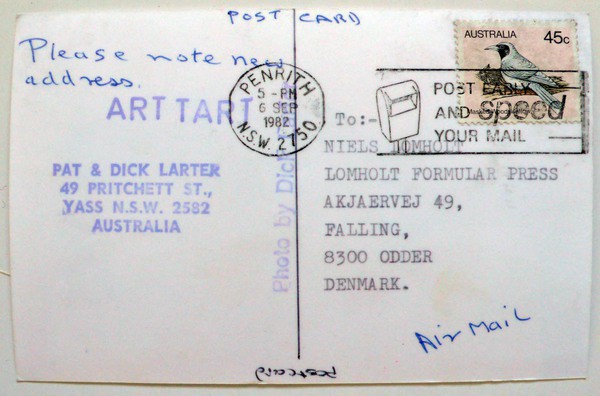 POST CARD
Please note new
address.
ART TART
PAT & DICK LARTER
49 PRITCHETT ST.,
YASS N.S.W. 2582
AUSTRALIA
Photo by Dick
PENRITH
5 - PM
6 SEP
1982
N.S.W. 2750
AUSTRALIA 45c
POST EARLY
AND speed
YOUR MAIL
To:-
NIELS LOMHOLT
LOMHOLT FORMULAR PRESS
AKJAERVEJ 49,
FALLING,
8300 ODDER
DENMARK.
Air Mail
Postcard